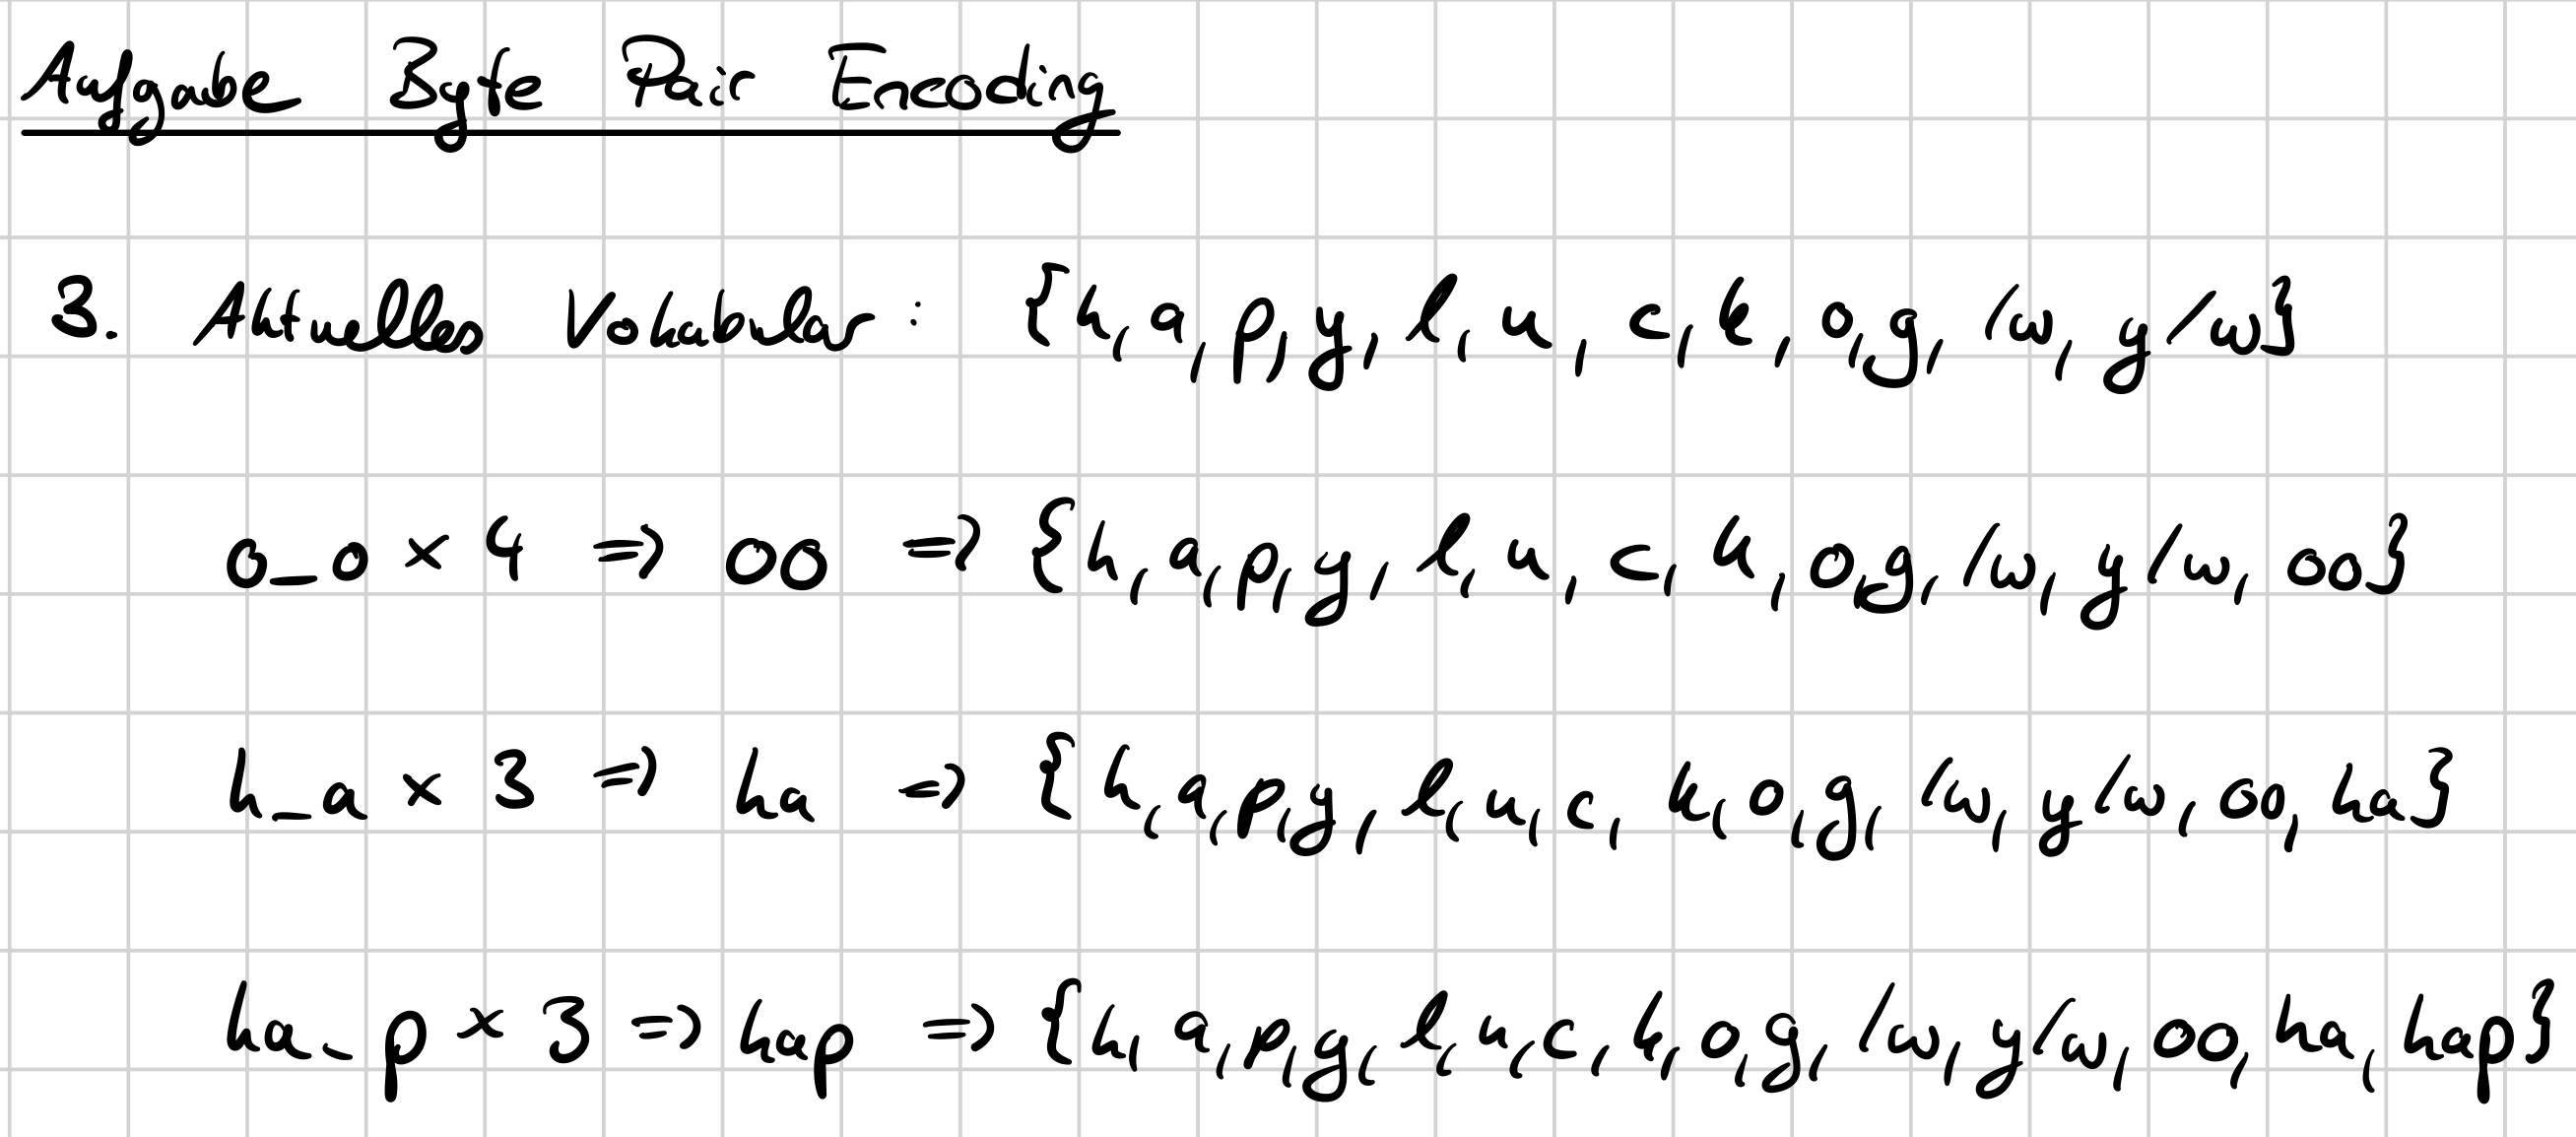 Aufgabe Byte Pair Encoding
3. Aktuelles Vokabular: {h, a, p, y, l, u, c, k, o, g, /w, y/w}
o_o × 4 ⇒ oo ⇒ {h, a, p, y, l, u, c, k, o, g, /w, y/w, oo}
h_a × 3 ⇒ ha ⇒ {h, a, p, y, l, u, c, k, o, g, /w, y/w, oo, ha}
ha_p × 3 ⇒ hap ⇒ {h, a, p, y, l, u, c, k, o, g, /w, y/w, oo, ha, hap}